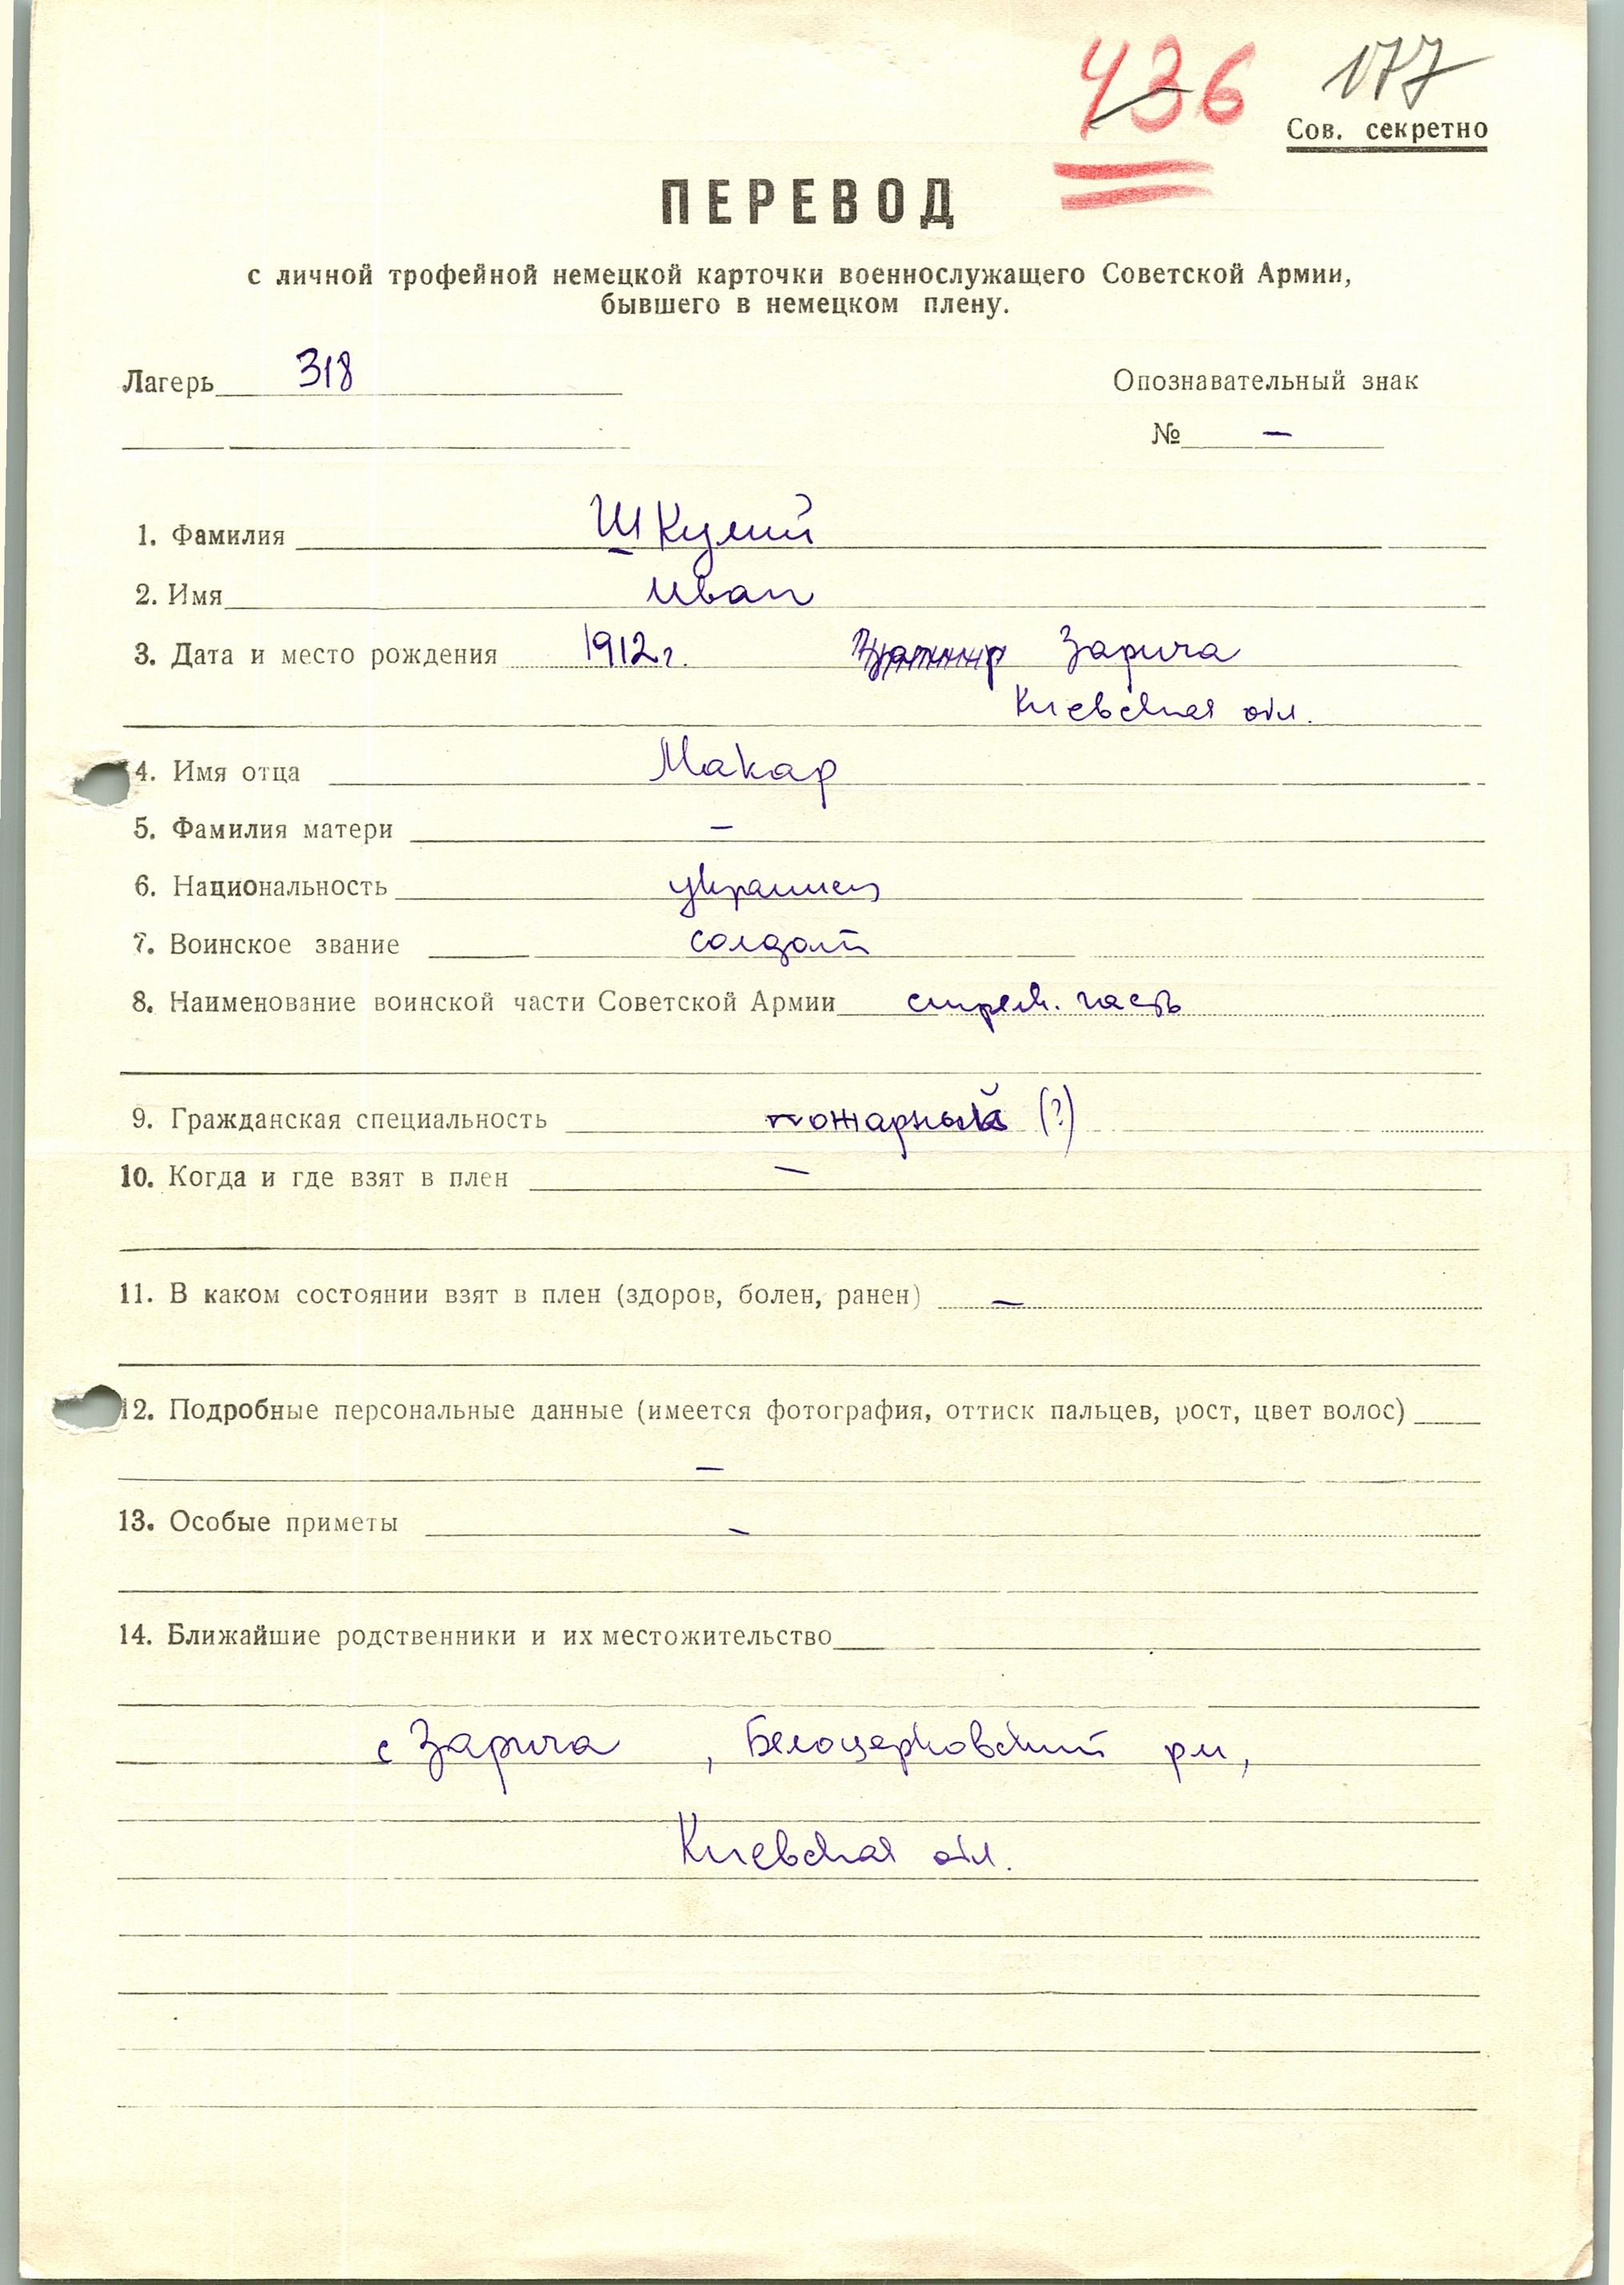 436 177
Сов. секретно
ПЕРЕВОД
с личной трофейной немецкой карточки военнослужащего Советской Армии,
бывшего в немецком плену.
Лагерь 318 Опознавательный знак
№ –
1. Фамилия Шкулий
2. Имя Иван
3. Дата и место рождения 1912 г. Зарича
Киевская обл.
4. Имя отца Макар
5. Фамилия матери –
6. Национальность украинец
7. Воинское звание солдат
8. Наименование воинской части Советской Армии стрелк. часть
9. Гражданская специальность пожарный (?)
10. Когда и где взят в плен –
11. В каком состоянии взят в плен (здоров, болен, ранен) –
12. Подробные персональные данные (имеется фотография, оттиск пальцев, рост, цвет волос)
–
13. Особые приметы –
14. Ближайшие родственники и их местожительство
с Зарича , Белоцерковский рн,
Киевская обл.